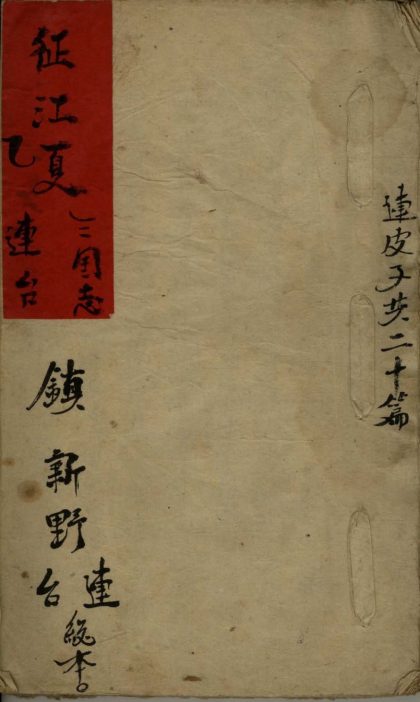 連皮子共二十篇
征江夏
三国志
乙
連台
鎮新野
連台
総本